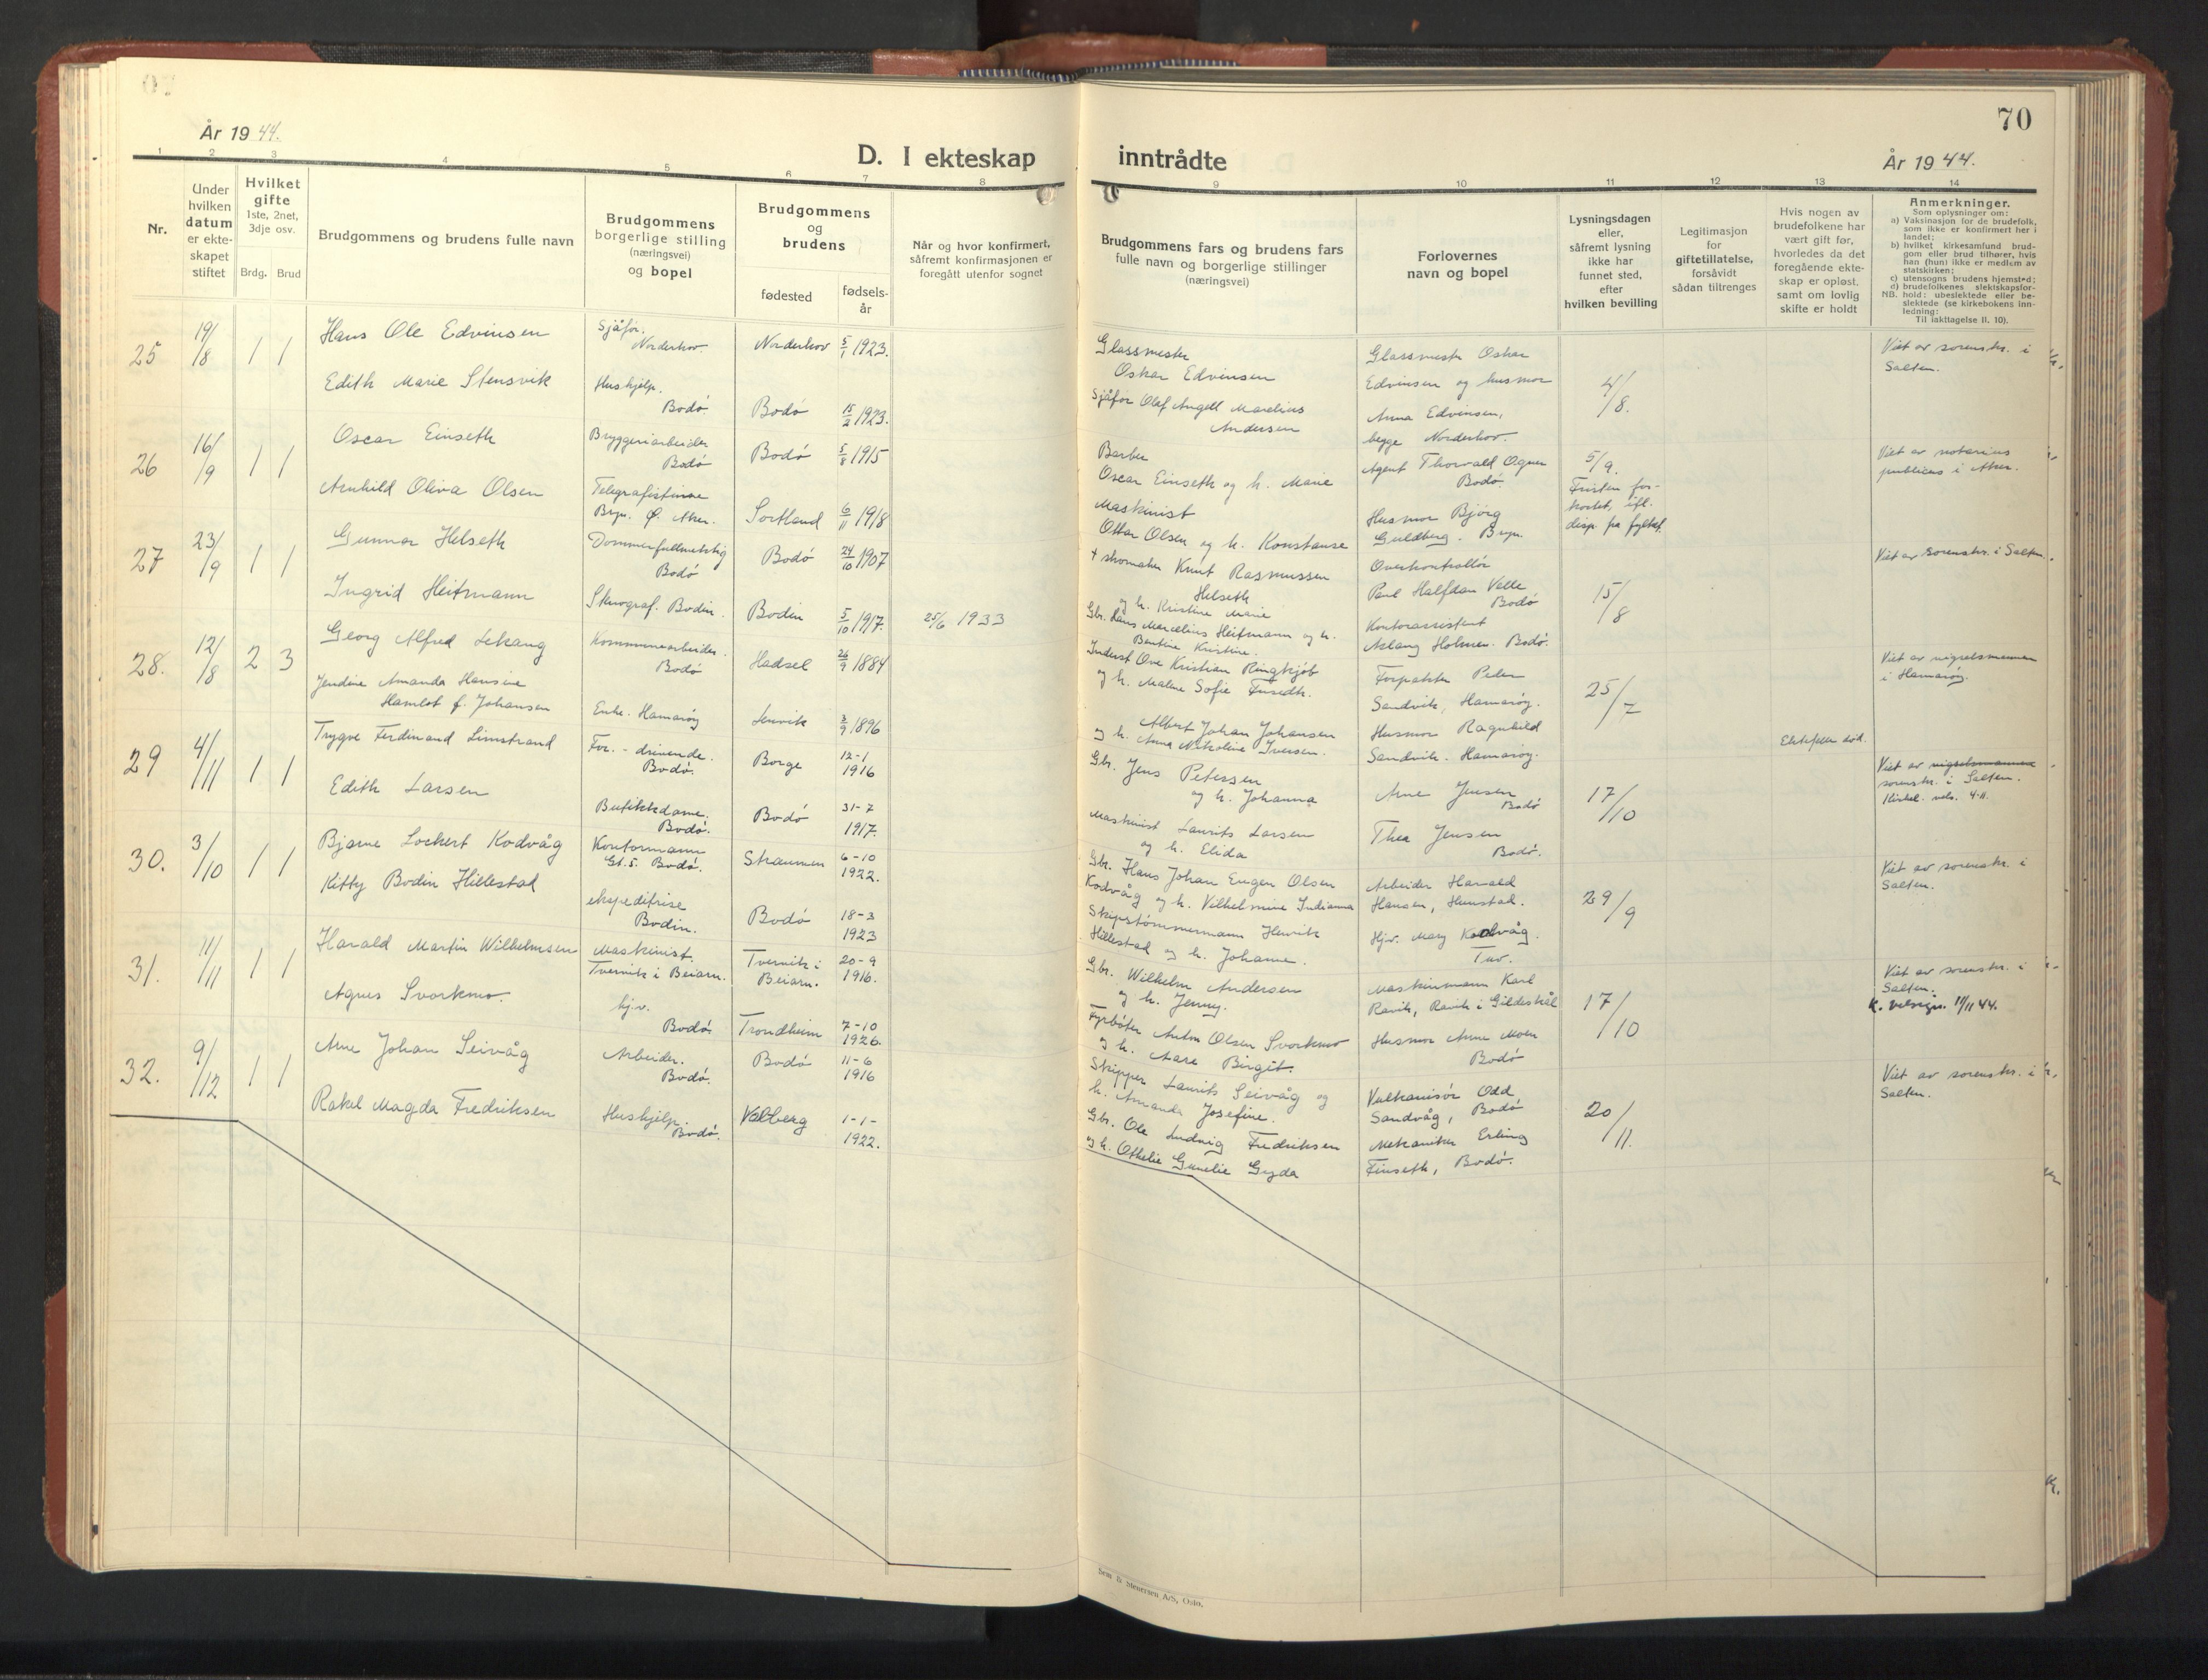 År 1944.
D. I ekteskap
1 2 3 4 5 6 7 8
Nr.
Under hvilken datum er ekteskapet stiftet
Hvilket gifte
1ste, 2net, 3dje osv.
Brdg. Brud
Brudgommens og brudens fulle navn
Brudgommens borgerlige stilling (næringsvei) og bopel
Brudgommens og brudens
fødested
fødselsår
Når og hvor konfirmert, såfremt konfirmasjonen er foregått utenfor sognet
25 19/8 1 1 Hans Ole Edvinsen Sjåfør. Norderhov. Norderhov 5/1 1923.
Edith Marie Stensvik Hushjelp. Bodø Bodø 15/2 1923.
26 16/9 1 1 Oscar Einseth Bryggeriarbeider Bodø Bodø 5/8 1915
Arnhild Oliva Olsen Telegrafistinne Bryn. Ø. Aker. Sortland 6/11 1918
27 23/9 1 1 Gunnar Helseth Dommerfullmektig Bodø Bodø 24/10 1907
Ingrid Heitmann Stenograf. Bodin. Bodin 5/10 1917. 25/6 1933
28. 12/8 2 3 Georg Alfred Lekang Kommunearbeider. Bodø Hadsel 26/9 1884
Jendine Amanda Hansine
Hamlot f. Johansen Enke. Hamarøy Lenvik 3/9 1896
29 4/11 1 1 Trygve Ferdinand Limstrand For.-drivende. Bodø. Borge 12-1 1916
Edith Larsen Butikkdame. Bodø. Bodø 31-7 1917.
30. 3/10 1 1 Bjarne Lockert Kodvåg Kontormann Gt. 5. Bodø. Straumen 6-10 1922.
Kitty Bodin Hillestad ekspeditrise Bodin. Bodø 18-3 1923
31. 11/11 1 1 Harald Martin Wilhelmsen Maskinist. Tvervik i Beiarn. Tvervik i Beiarn. 20-9 1916.
Agnes Svorkmo. hj.v. Bodø. Trondheim 7-10 1926.
32. 9/12 1 1 Arne Johan Seivåg Arbeider. Bodø. Bodø 11-6 1916
Rakel Magda Fredriksen Hushjelp. Bodø. Valberg 1-1- 1922.
70
inntrådte
År 1944.
9 10 11 12 13 14
Brudgommens fars og brudens fars fulle navn og borgerlige stillinger (næringsvei)
Forlovernes navn og bopel
Lysningsdagen eller, såfremt lysning ikke har funnet sted, efter hvilken bevilling
Legitimasjon for giftetillatelse, forsåvidt sådan tiltrenges
Hvis nogen av brudefolkene har vært gift før, hvorledes da det foregående ekteskap er opløst, samt om lovlig skifte er holdt
Anmerkninger.
Som oplysninger om:
a) Vaksinasjon for de brudefolk, som ikke er konfirmert her i landet;
b) hvilket kirkesamfund brudgom eller brud tilhører, hvis han (hun) ikke er medlem av statskirken;
c) utensogns brudens hjemsted;
d) brudefolkenes slektskapsforhold: ubeslektede eller beslektede (se kirkebokens innledning:
NB. Til iakttagelse II. 10).
Glassmester
Oskar Edvinsen
Sjåfør Olaf Angell Marelius
Andersen
Glassmester Oskar
Edvinsen og husmor
Anna Edvinsen,
begge Norderhov.
4/8.
Viet av sorenskr. i
Salten.
Barber
Oscar Einseth og h. Marie
Maskinist
Ottar Olsen og h. Konstanse
Agent Thorvald Ogner
Bodø.
Husmor Bjørg
Guldberg. Bryn.
5/9.
Fristen for-
kortet, ifl.
disp. fra fylkesf.
Viet av notarius
publicus i Aker.
+ skomaker Knut Rasmussen
Helseth
og h. Kristine Marie
Gbr. Hans Marcelius Heitmann og h.
Bentine Kristine.
Overkontrollør
Paul Halfdan Valle
Bodø
Kontorassistent
Aslaug Holmen. Bodø.
15/8
Viet av sorenskr. i Salten.
Inderst Ove Kristian Ringkjøb
og h. Malene Sofie Fredh.
Albert Johan Johansen
og h. Anna Nikoline Iversen.
Forpakter Peder
Sandvik, Hamarøy.
Husmor Ragnhild
Sandvik. Hamarøy.
25/7
Ektefelle død.
Viet av vigselsmannen
i Hamarøy.
Gbr. Jens Petersen
og h. Johanna
Maskinist Laurits Larsen
og h. Elida
Arne Jensen
Bodø
Thea Jensen
Bodø.
17/10
Viet av vigselsmannen
sorenskr. i Salten.
Kirkel. vels. 4-11.
Gbr. Hans Johan Eugen Olsen
Kodvåg og h. Vilhelmine Indianna
Skipstømmermann Henrik
Hillestad og h. Johanne.
Arbeider Harald
Hansen, Hunstad.
Hjv. Mary Kodvåg.
Tuv.
29/9
Viet av sorenskr. i
Salten.
Gbr. Wilhelm Andersen
og h. Jenny.
Fyrbøter Anton Olsen Svorkmo
og h. Aase Birgit.
Maskinmann Karl
Ravik, Ravik i Gildeskål
Husmor Anne Moen
Bodø
17/10
Viet av sorenskr. i
Salten.
K. velsign. 11/11 44.
Skipper Laurits Seivåg og
h. Amanda Josefine.
Gbr. Ole Ludvig Fredriksen
og h. Othelie Gunelie Gyda
Vulkanisør Odd
Sandvåg, Bodø
Mekaniker Erling
Finseth, Bodø.
20/11.
Viet av sorenskr. i
Salten.
Sem & Stenersen A/S, Oslo.